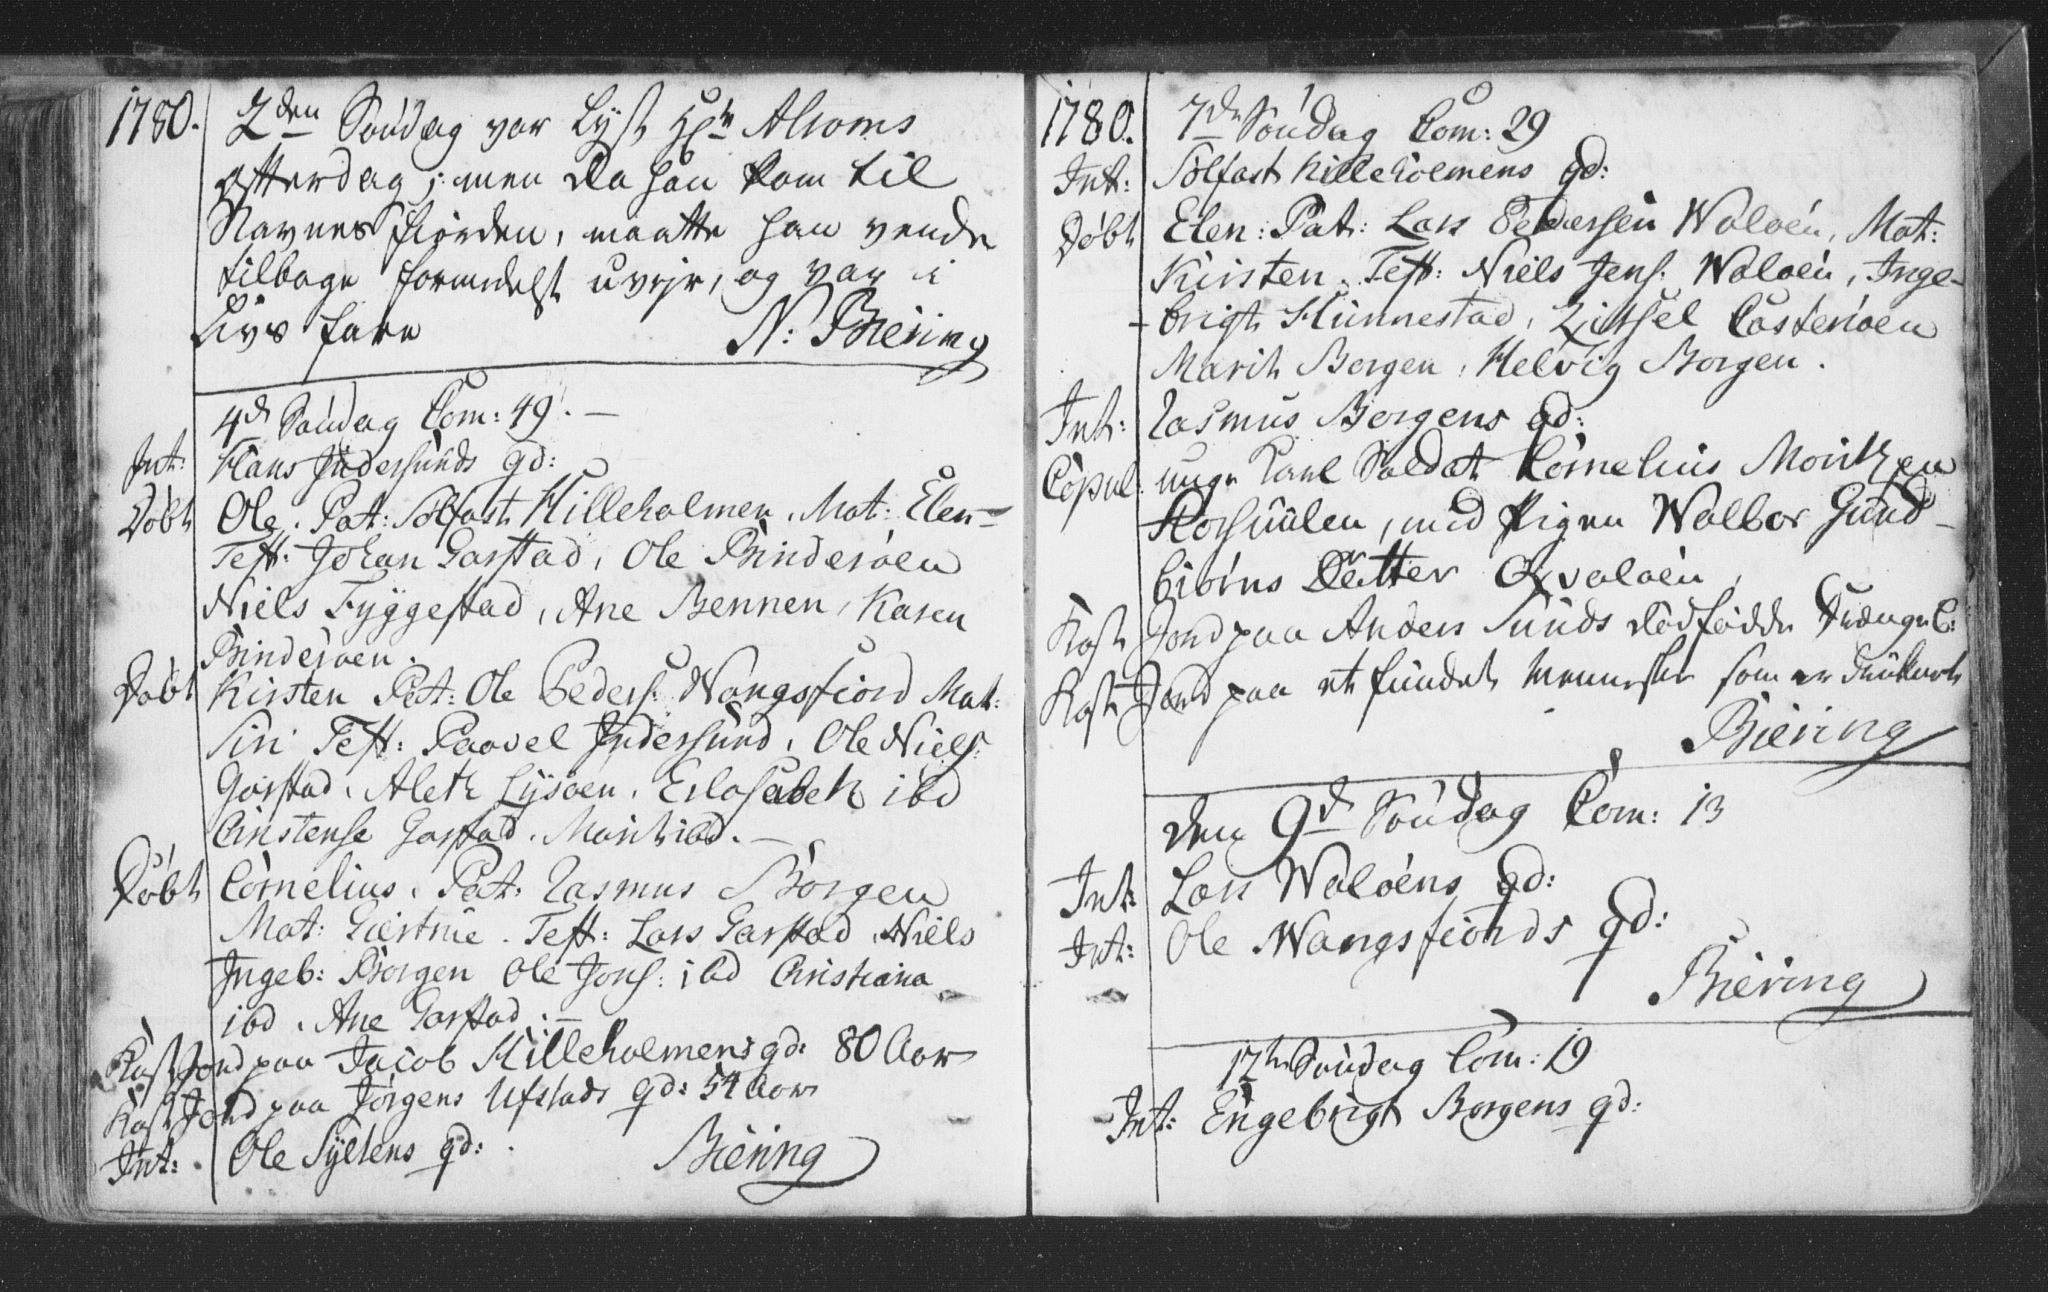 1780. 2den Søndag var lyst Hr. Alroms
Efterdag; men da han kom til
Navnes fiorden, maatte han vende
tilbage formedelst uvejr, og var i
Livs fare N: Biering
4de Søndag Com: 49. —
Int: Hans Indersunds qd:
Døbt Ole. Pat: Solfast Killeholmen. Mat: Elen –
Test: Johan Garstad, Ole Binderøen
Niels Fyggestad, Ane Bennen, Karen
Binderøen.
Døbt Kirsten Pat: Ole Peders: Wangsfiord Mat:
Siri Test: Paavel Indersund, Ole Niels:
Garstad, Aleth Lysøen, Elisabeth ibd
Christense Garstad. Marith ibd. —
Døbt Cornelius. Pat: Rasmus Borgen
Mat: Giertrue. Test: Lars Garstad, Niels
Ingeb: Borgen Ole Jons: ibd Christiana
ibd. Ane Garstad. —
Kast Jord paa Jacob Killeholmens qd: 80 Aar
Kast Jord paa Jørgens Ufstads qd: 54 Aar
Int: Ole Syltens qd: Biering
1780. 7de Søndag Com: 29
Int: Solfast Killeholmens qd:
Døbt Elen: Pat: Lars Pedersen Waløen, Mat:
Kirsten. Test: Niels Jens: Waløen, Inge-
brigt Hunnestad, Zidsel Casterøen
Marith Borgen, Helvig Borgen.
Int: Rasmus Borgens qd:
Copul. unge Karl Soldat Cornelius Moritzen
Horsuulen, med Pigen Walbor Gund-
biørns Datter Qvaløen,
Kast Jord paa Anders Sunds dødfødde Drænge B:
Kast Jord paa et fundet Menneske som er druknet
Biering
den 9de Søndag Com: 13
Int: Lars Waløens qd:
Int: Ole Wangsfiords qd:
Biering
12te Søndag Com: 19
Int: Engebrigt Borgens qd: